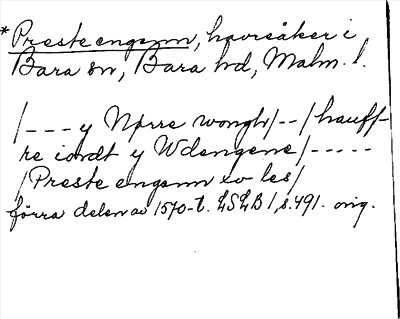 * Preste engenn, havreåker i
Bara sn, Bara hd, Malm. l.
/--- y Nørre wongh/--/hauff-
re iordt y Wdengene/-----
/Preste engenn xv les/
förra delen av 1570-t. LSLB 1, s. 491. orig.